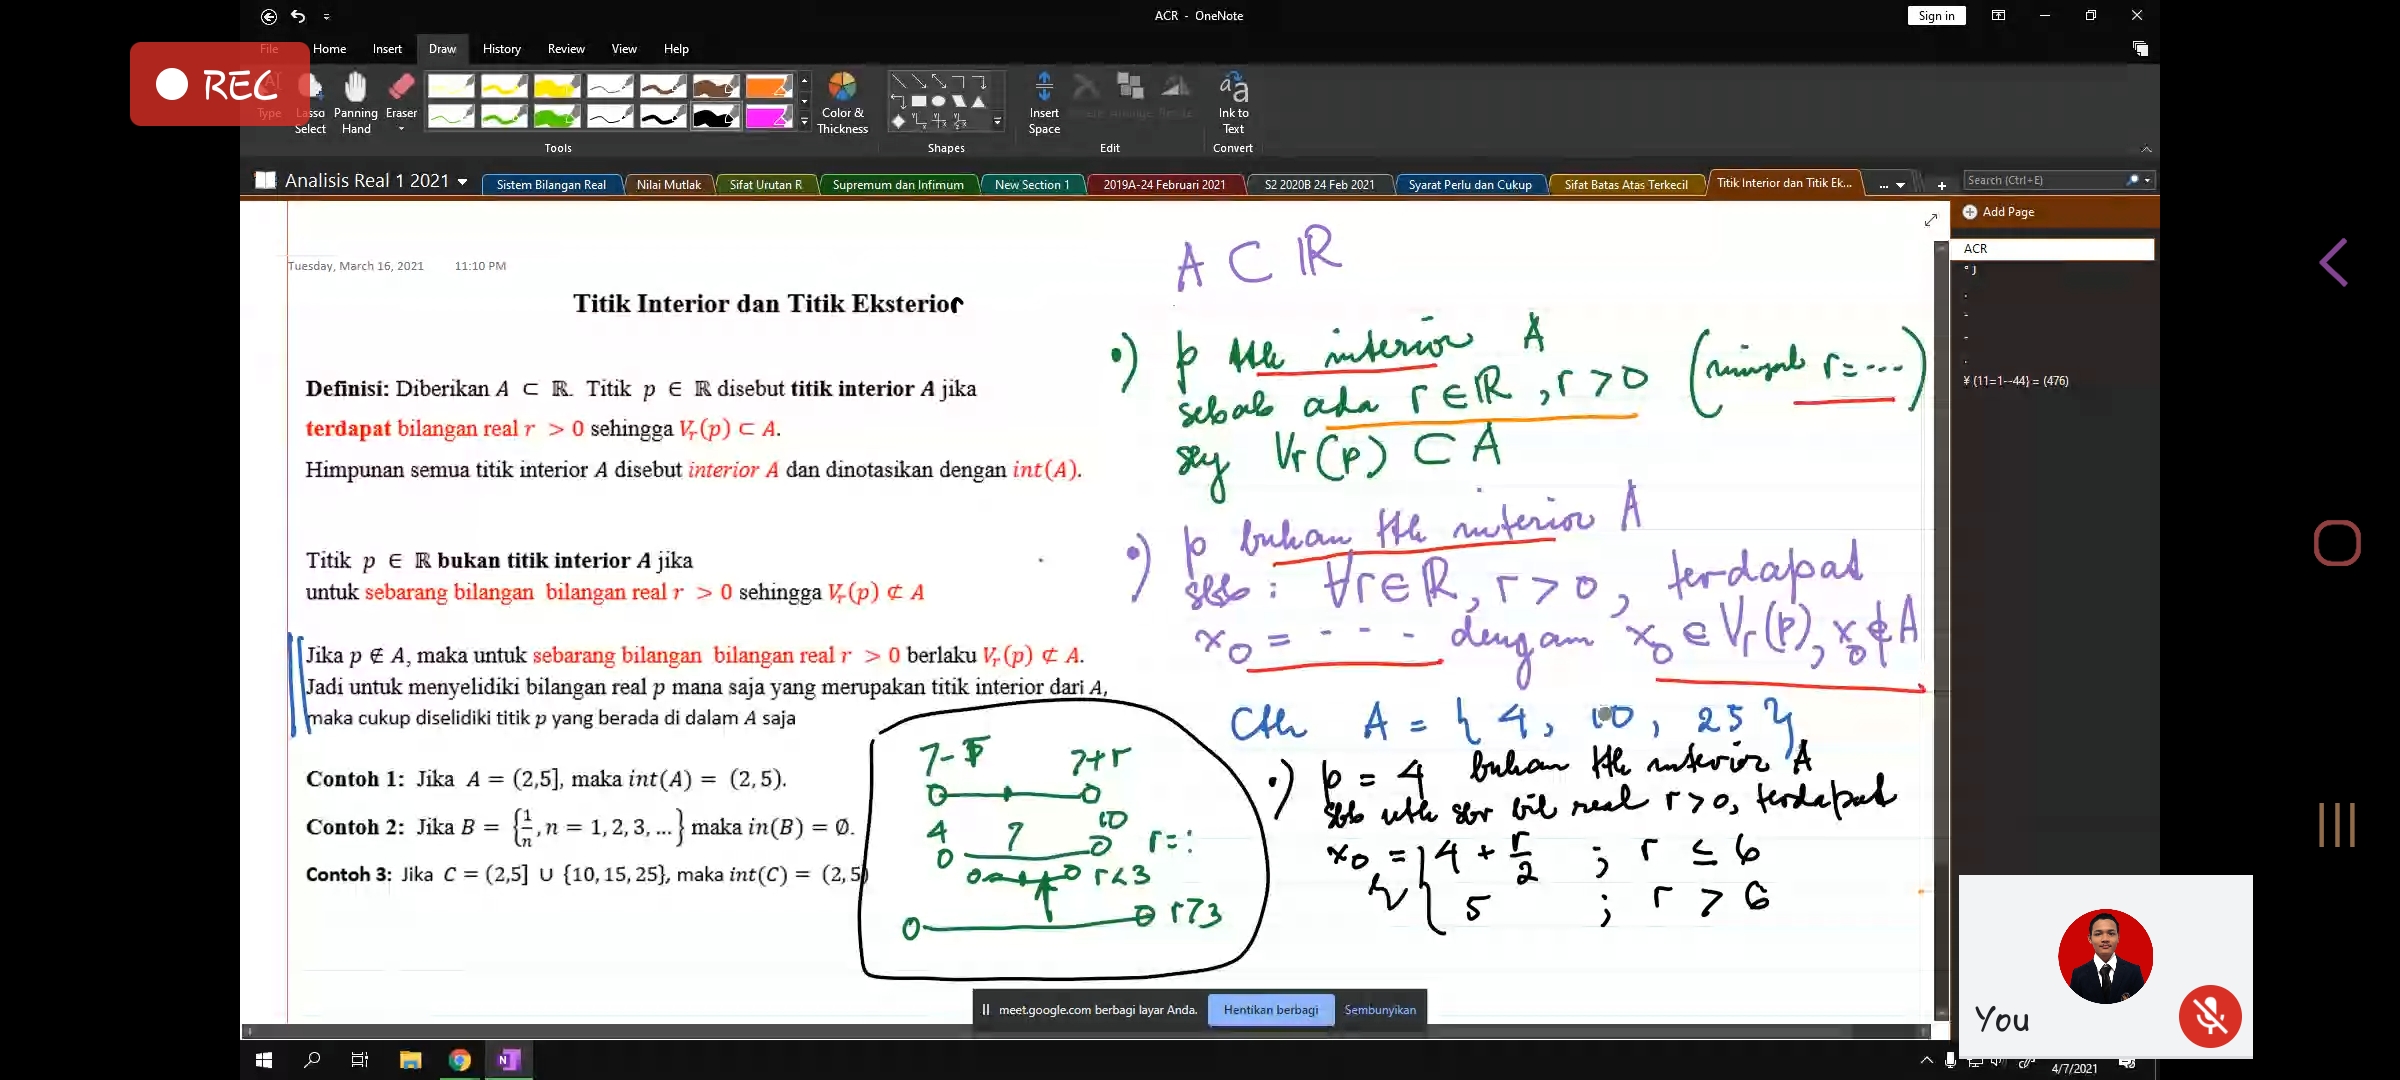 ACR - OneNote
Sign in
REC
File Home Insert Draw History Review View Help
Type
Lasso Select
Panning Hand
Eraser
Color & Thickness
Insert Space
Ink to Text
Tools
Shapes
Edit
Convert
Analisis Real 1 2021
Sistem Bilangan Real
Nilai Mutlak
Sifat Urutan R
Supremum dan Infimum
New Section 1
2019A-24 Februari 2021
S2 2020B 24 Feb 2021
Syarat Perlu dan Cukup
Sifat Batas Atas Terkecil
Titik Interior dan Titik Ek...
...
Search (Ctrl+E)
Add Page
ACR
¥ (11=1--44) = (476)
Tuesday, March 16, 2021 11:10 PM
Titik Interior dan Titik Eksterior
Definisi: Diberikan A ⊂ ℝ. Titik p ∈ ℝ disebut titik interior A jika
terdapat bilangan real r > 0 sehingga Vr(p) ⊂ A.
Himpunan semua titik interior A disebut interior A dan dinotasikan dengan int(A).
Titik p ∈ ℝ bukan titik interior A jika
untuk sebarang bilangan bilangan real r > 0 sehingga Vr(p) ⊄ A
Jika p ∉ A, maka untuk sebarang bilangan bilangan real r > 0 berlaku Vr(p) ⊄ A.
Jadi untuk menyelidiki bilangan real p mana saja yang merupakan titik interior dari A,
maka cukup diselidiki titik p yang berada di dalam A saja
Contoh 1: Jika A = (2,5], maka int(A) = (2,5).
Contoh 2: Jika B = {1/n, n = 1, 2, 3, ...} maka in(B) = ∅.
Contoh 3: Jika C = (2,5] ∪ {10, 15, 25}, maka int(C) = (2,5)
7-r 7+r
4 7 10
r = :
r<3
r>3
A ⊂ ℝ
•) p ttk interior A
sebab ada r ∈ ℝ, r > 0 (misal r = ...)
seg Vr(p) ⊂ A
•) p bukan ttk interior A
sbb : ∀r ∈ ℝ, r > 0, terdapat
x0 = - - - dengan x0 ∈ Vr(p), x0 ∉ A
Cth A = { 4, 10, 25 }
•) p = 4 bukan ttk interior A
sbb utk sbr bil real r > 0, terdapat
x0 = { 4 + r/2 ; r ≤ 6
5 ; r > 6
meet.google.com berbagi layar Anda.
Hentikan berbagi
Sembunyikan
You
4/7/2021